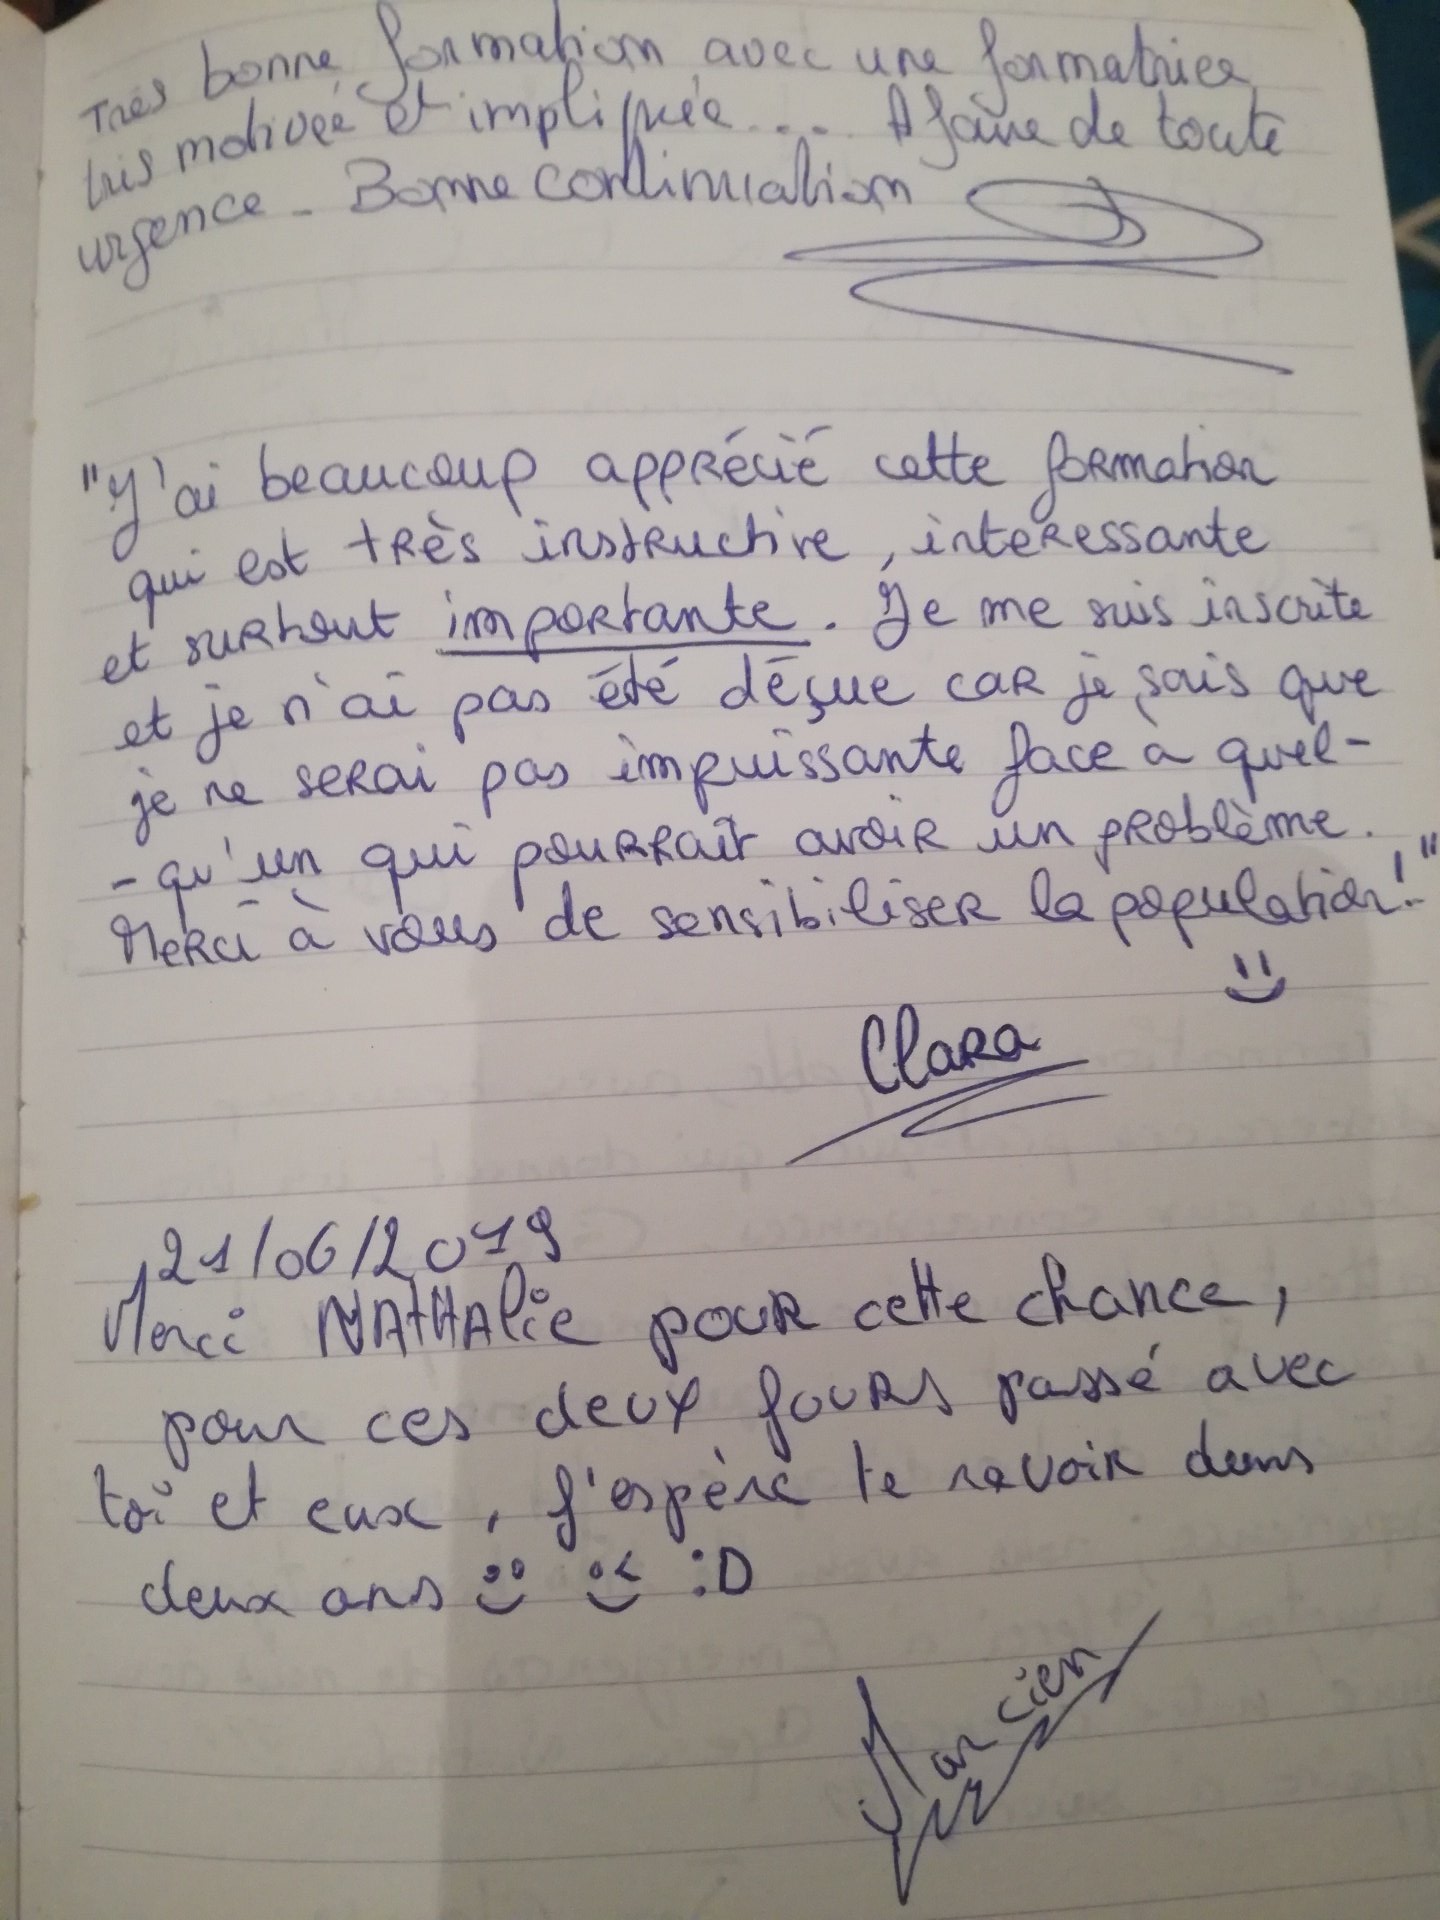 Très bonne formation avec une formatrice
très motivée et impliquée... A faire de toute
urgence. Bonne continuation
"J'ai beaucoup apprécié cette formation
qui est très instructive, interessante
et surtout importante. Je me suis inscrite
et je n'ai pas été déçue car je sais que
je ne serai pas impuissante face à quel-
-qu'un qui pourrait avoir un problème.
Merci à vous de sensibiliser la population!"
Clara
21/06/2019
Merci NATHAlie pour cette chance,
pour ces deux jours passé avec
toi et eux, j'espère te revoir dans
deux ans :D